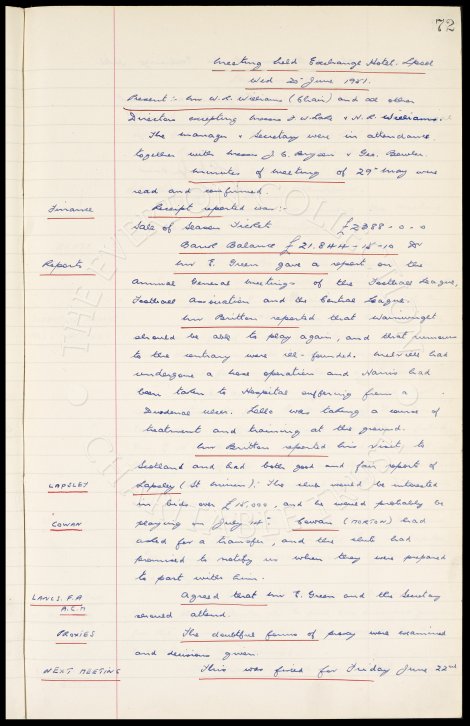 72
Meeting held Exchange Hotel. Lpool
Wed 20 June 1951.
Present:- Mr W.R. Williams (Chair) and all other
Directors excepting Messrs & N.R. Williams.
The Manager & Secretary were in attendance
together with Messrs J.C. & Geo. Bowler.
Minutes of meeting of 29th May were
read and confirmed.
Finance Receipt reported was:-
Sale of Season Tickets £2388-0-0
Bank Balance £21,844-15-10
Reports Mr E. Green gave a report on the
Annual General Meetings of the Football League,
Football Association and the Central League.
Mr Britton reported that Wainwright
should be able to play again, and that rumours
to the contrary were ill-founded. Melville had
undergone a nose operation and Harris had
been taken to Hospital suffering from a
Duodenal ulcer. Lello was taking a course of
treatment and training at the ground.
Mr Britton reported his visit to
Scotland and had both good and fair reports of
LAPSLEY Lapsley (St Mirren). The club would be interested
in bids over £15,000, and he would probably be
COWAN playing on July 14. Cowan (MORTON) had
asked for a transfer, and the club had
promised to notify us when they were prepared
to part with him.
LANCS. F.A. Agreed that Mr E. Green and the Secretary
A.G.M should attend.
PROXIES The doubtful forms of proxy were examined
and decisions given.
NEXT MEETING This was fixed for Friday June 22nd